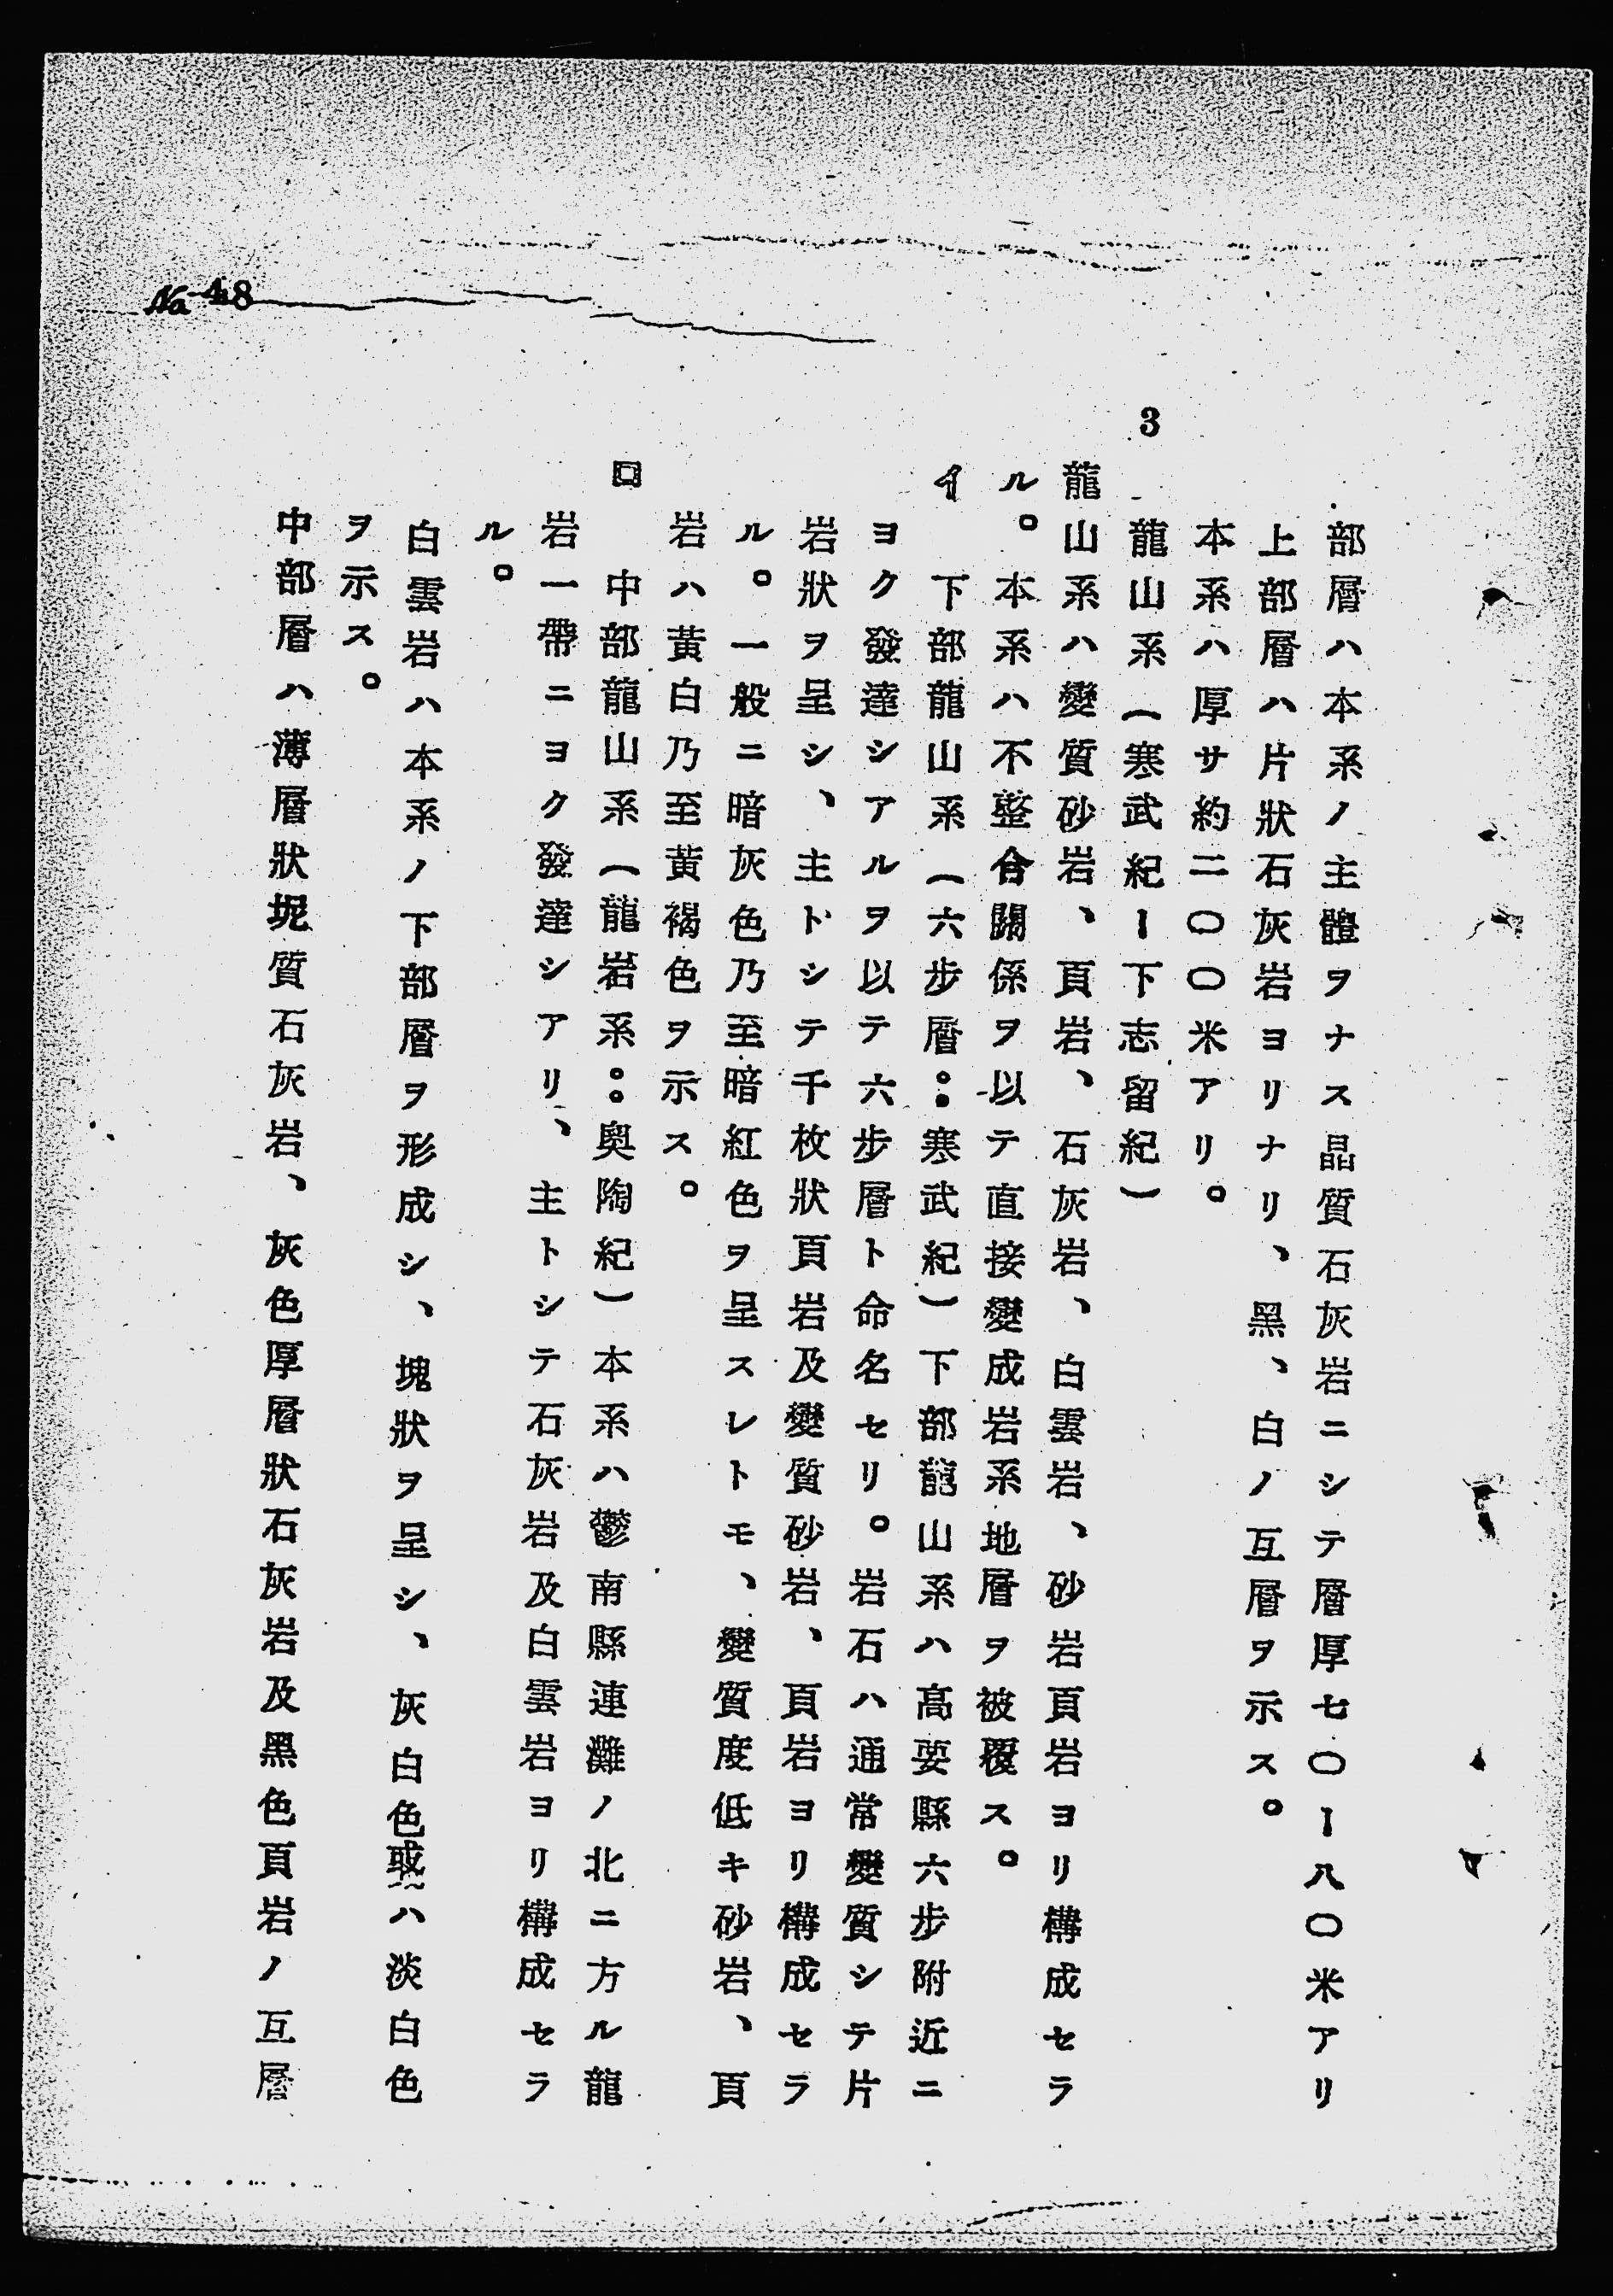 No 48
部層ハ本系ノ主體ヲナス晶質石灰岩ニシテ層厚七〇ー八〇米アリ
上部層ハ片狀石灰岩ヨリナリ、黑、白ノ互層ヲ示ス。
本系ハ厚サ約二〇〇米アリ。
3 龍山系(寒武紀ー下志留紀)
龍山系ハ變質砂岩、頁岩、石灰岩、白雲岩、砂岩頁岩ヨリ構成セラ
ル。本系ハ不整合關係ヲ以テ直接變成岩系地層ヲ被覆ス。
イ 下部龍山系(六步層:寒武紀)下部龍山系ハ高要縣六步附近ニ
ヨク發達シアルヲ以テ六步層ト命名セリ。岩石ハ通常變質シテ片
岩狀ヲ呈シ、主トシテ千枚狀頁岩及變質砂岩、頁岩ヨリ構成セラ
ル。一般ニ暗灰色乃至暗紅色ヲ呈スレトモ、變質度低キ砂岩、頁
岩ハ黃白乃至黃褐色ヲ示ス。
ロ 中部龍山系(龍岩系:奧陶紀)本系ハ鬱南縣連灘ノ北ニ方ル龍
岩一帶ニヨク發達シアリ、主トシテ石灰岩及白雲岩ヨリ構成セラ
ル。
白雲岩ハ本系ノ下部層ヲ形成シ、塊狀ヲ呈シ、灰白色或ハ淡白色
ヲ示ス。
中部層ハ薄層狀坭質石灰岩、灰色厚層狀石灰岩及黑色頁岩ノ互層